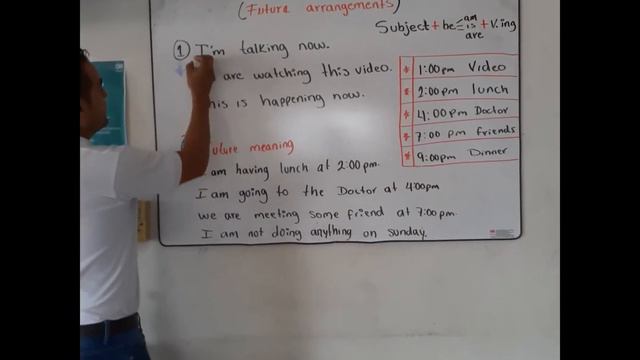 (Future arrangements)
Subject + be am is are + V.ing
① I'm talking now.
are watching this video.
his is happening now.
uture meaning
am having lunch at 2:00pm.
I am going to the Doctor at 4:00pm
we are meeting some friend at 7:00pm.
I am not doing anything on sunday.
* 1:00pm Video
* 2:00pm lunch
* 4:00pm Doctor
* 7:00 pm friends
* 9:00pm Dinner